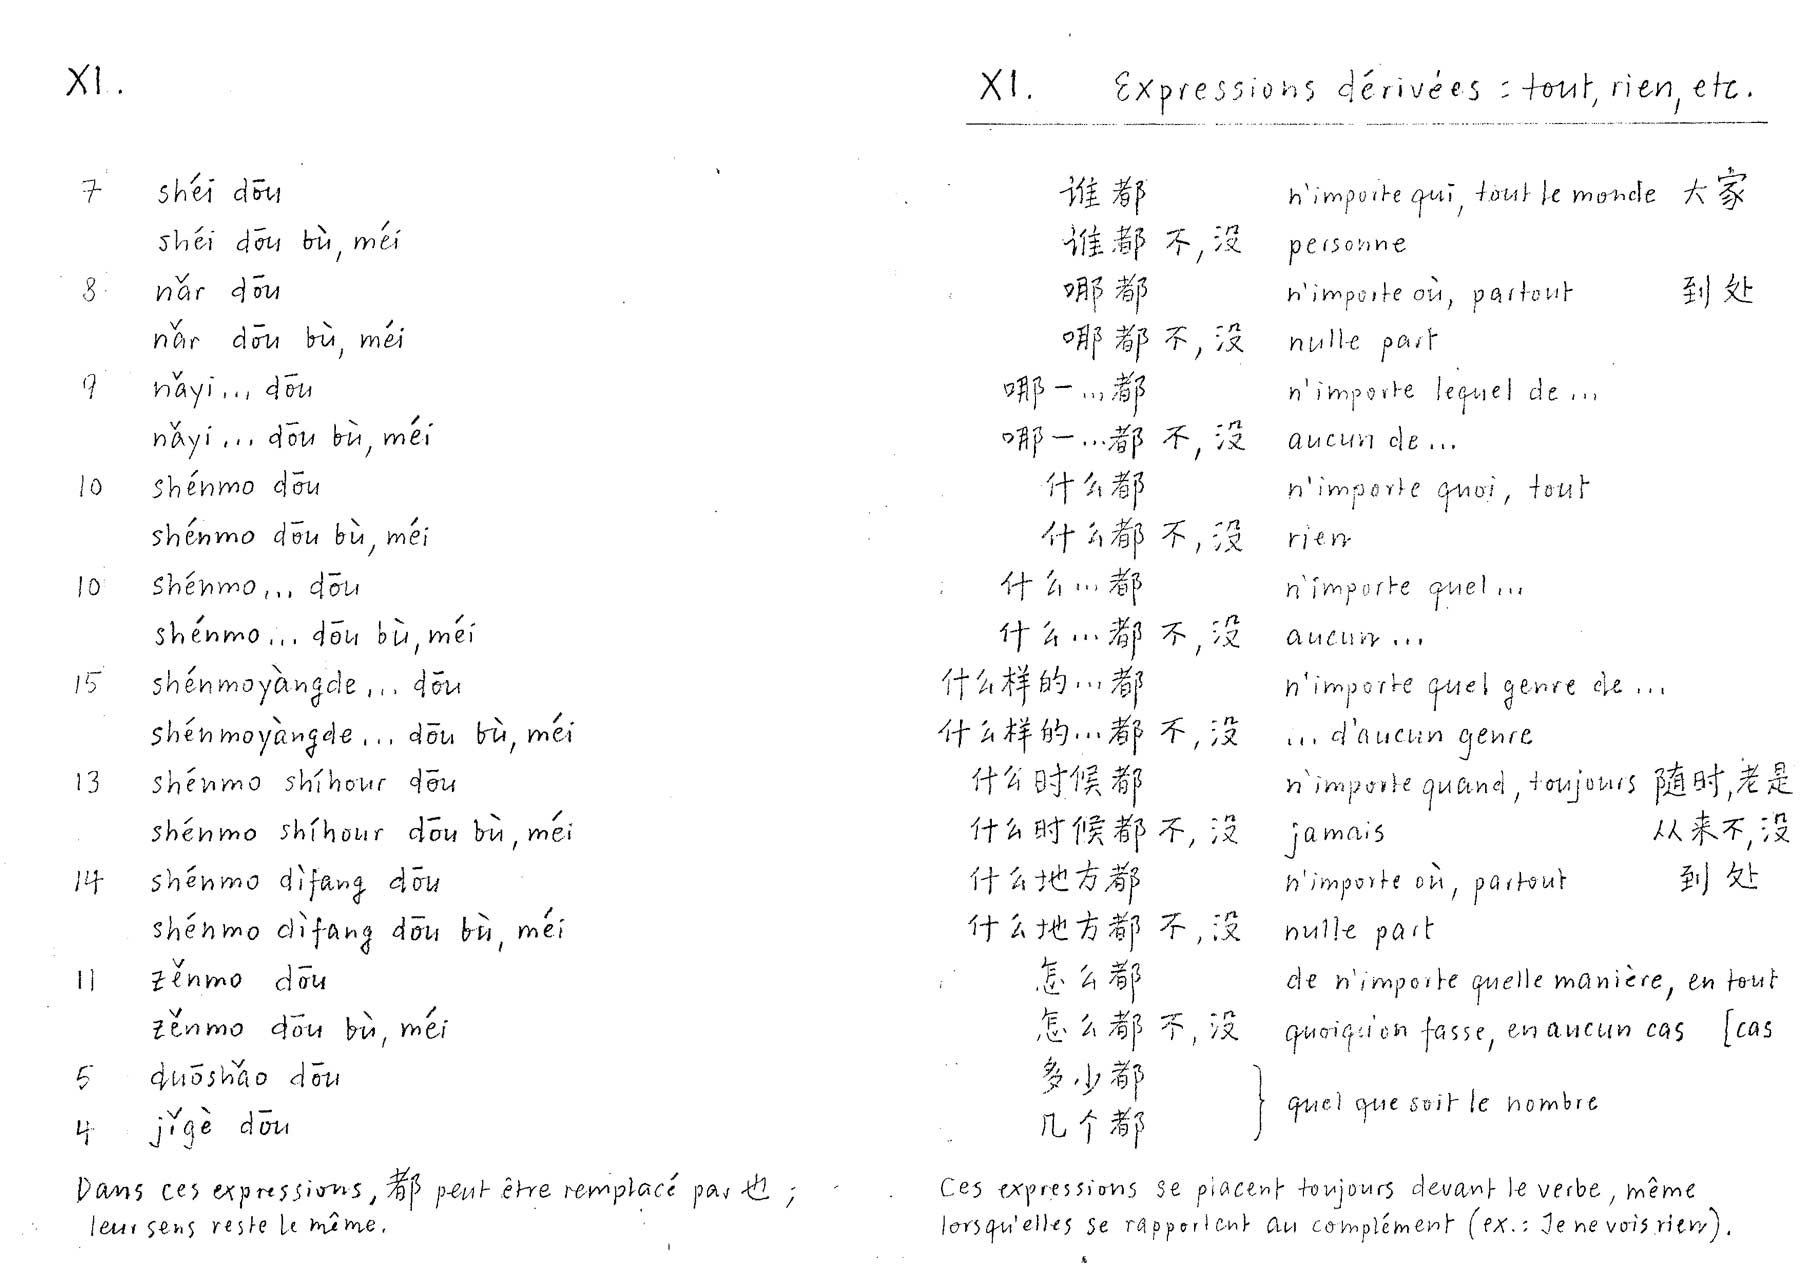 XI.
7 shéi dōu
shéi dōu bù, méi
8 nǎr dōu
nǎr dōu bù, méi
9 nǎyi... dōu
nǎyi... dōu bù, méi
10 shénmo dōu
shénmo dōu bù, méi
10 shénmo... dōu
shénmo... dōu bù, méi
15 shénmoyàngde... dōu
shénmoyàngde... dōu bù, méi
13 shénmo shíhour dōu
shénmo shíhour dōu bù, méi
14 shénmo dìfang dōu
shénmo dìfang dōu bù, méi
11 zěnmo dōu
zěnmo dōu bù, méi
5 duōshǎo dōu
4 jǐgè dōu
Dans ces expressions, 都 peut être remplacé par 也 ;
leur sens reste le même.
XI. Expressions dérivées : tout, rien, etc.
谁都 n'importe qui, tout le monde 大家
谁都不,没 personne
哪都 n'importe où, partout 到处
哪都不,没 nulle part
哪一...都 n'importe lequel de...
哪一...都不,没 aucun de...
什么都 n'importe quoi, tout
什么都不,没 rien
什么...都 n'importe quel...
什么...都不,没 aucun...
什么样的...都 n'importe quel genre de...
什么样的...都不,没 ... d'aucun genre
什么时候都 n'importe quand, toujours 随时,老是
什么时候都不,没 jamais 从来不,没
什么地方都 n'importe où, partout 到处
什么地方都不,没 nulle part
怎么都 de n'importe quelle manière, en tout
怎么都不,没 quoiqu'on fasse, en aucun cas [cas
多少都
几个都 } quel que soit le nombre
Ces expressions se placent toujours devant le verbe, même
lorsqu'elles se rapportent au complément (ex. : Je ne vois rien).